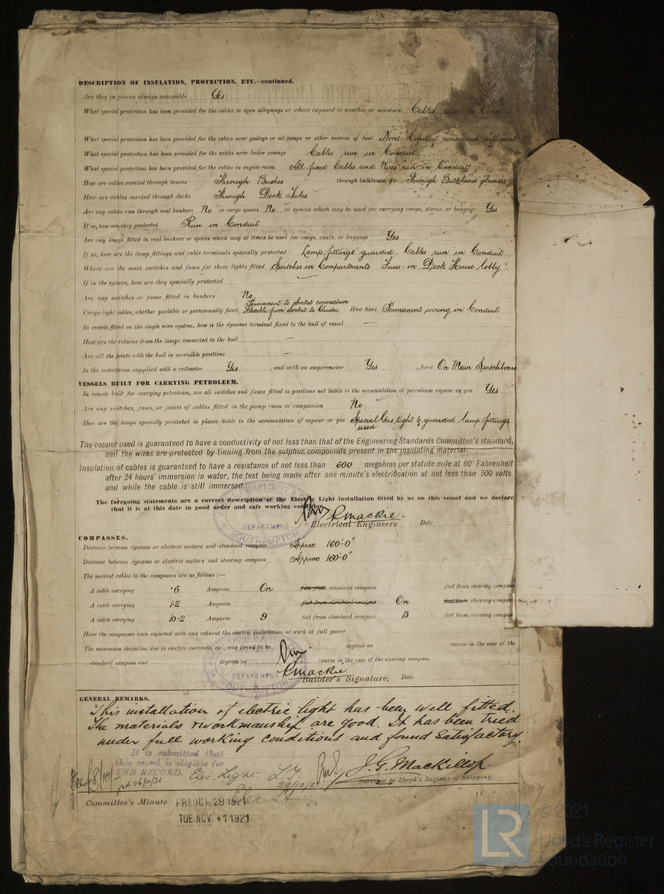 DESCRIPTION OF INSULATION, PROTECTION, ETC.—continued.
Are they in places always accessible Yes
What special protection has been provided for the cables in open alleyways or where exposed to weather or moisture Cables run in Conduit
What special protection has been provided for the cables near galleys or oil lamps or other sources of heat None Conduit considered sufficient
What special protection has been provided for the cables near boiler casings Cables run in Conduit
What special protection has been provided for the cables in engine room All fixed Cables and Wires run in Conduit
How are cables carried through beams Through Bushes through bulkheads, &c. Through Bulkhead glands
How are cables carried through decks Through Deck Tubes
Are any cables run through coal bunkers No or cargo spaces No or spaces which may be used for carrying cargo, stores, or baggage Yes
If so, how are they protected Run in Conduit
Are any lamps fitted in coal bunkers or spaces which may at times be used for cargo, coals, or baggage Yes
If so, how are the lamp fittings and cable terminals specially protected Lamp fittings guarded. Cables run in Conduit
Where are the main switches and fuses for these lights fitted Switches in Compartments Fuse in Deck House lobby
If in the spaces, how are they specially protected —
Are any switches or fuses fitted in bunkers No
Permanent to Socket connection
Cargo light cables, whether portable or permanently fixed Flexible from Socket to Cluster How fixed Permanent wiring in Conduit
In vessels fitted on the single wire system, how is the dynamo terminal fixed to the hull of vessel —
How are the returns from the lamps connected to the hull —
Are all the joints with the hull in accessible positions —
Is the installation supplied with a voltmeter Yes , and with an amperemeter Yes , fixed On Main Switchboard
VESSELS BUILT FOR CARRYING PETROLEUM.
In vessels built for carrying petroleum, are all switches and fuses fitted in positions not liable to the accumulation of petroleum vapour or gas Yes
Are any switches, fuses, or joints of cables fitted in the pump room or companion No
How are the lamps specially protected in places liable to the accumulation of vapour or gas Special Gas tight & guarded lamp fittings
used
The copper used is guaranteed to have a conductivity of not less than that of the Engineering Standards Committee's standard,
and the wires are protected by tinning from the sulphur compounds present in the insulating material.
Insulation of cables is guaranteed to have a resistance of not less than 600 megohms per statute mile at 60° Fahrenheit
after 24 hours' immersion in water, the test being made after one minute's electrification at not less than 500 volts
and while the cable is still immersed.
The foregoing statements are a correct description of the Electric Light installation fitted by us on this vessel and we declare
that it is at this date in good order and safe working condition.
R mackie.
Electrical Engineers Date
DEPARTMENT
SOUTHAMPTON
COMPASSES.
Distance between dynamo or electric motors and standard compass Approx 160-0"
Distance between dynamo or electric motors and steering compass Approx 160-0"
The nearest cables to the compasses are as follows:—
A cable carrying .6 Amperes On feet from standard compass feet from steering compass
A cable carrying 1.2 Amperes feet from standard compass On feet from steering compass
A cable carrying 10.2 Amperes 9 feet from standard compass 13 feet from steering compass
Have the compasses been adjusted with and without the electric installation at work at full power
The maximum deviation due to electric currents, etc., was found to be degrees on course in the case of the
standard compass and degrees on course in the case of the steering compass.
R mackie
Builder's Signature. Date
DEPARTMENT
GENERAL REMARKS.
This installation of electric light has been well fitted.
The materials & workmanship are good. It has been tried
under full working conditions and found Satisfactory.
It is submitted that
this vessel is eligible for
THE RECORD. Elec. Light.
J. G. Mackillop.
Surveyor to Lloyd's Register of Shipping
Committee's Minute FRI. OCT. 28 1921
TUE. NOV. 1 1921
LR
© 2021
Lloyd's Register
Foundation